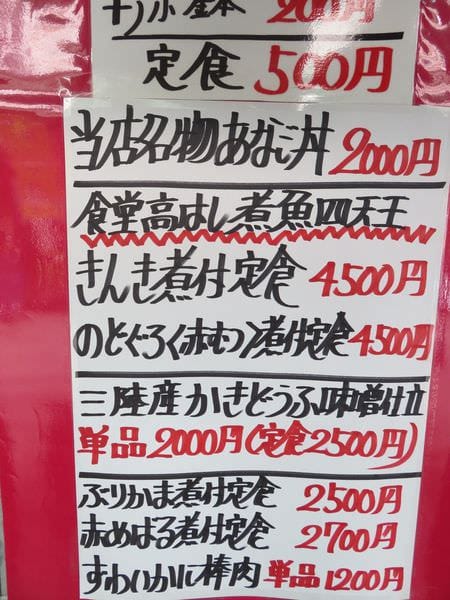 200円
定食 500円
当店名物あなご丼 2000円
食堂高はし煮魚四天王
きんき煮付定食 4500円
のどぐろ(赤むつ)煮付定食 4500円
三陸産かきどうふ味噌仕立
単品2000円(定食2500円)
ぶりかま煮付定食 2500円
赤めばる煮付定食 2700円
すわいかに棒肉 単品1200円